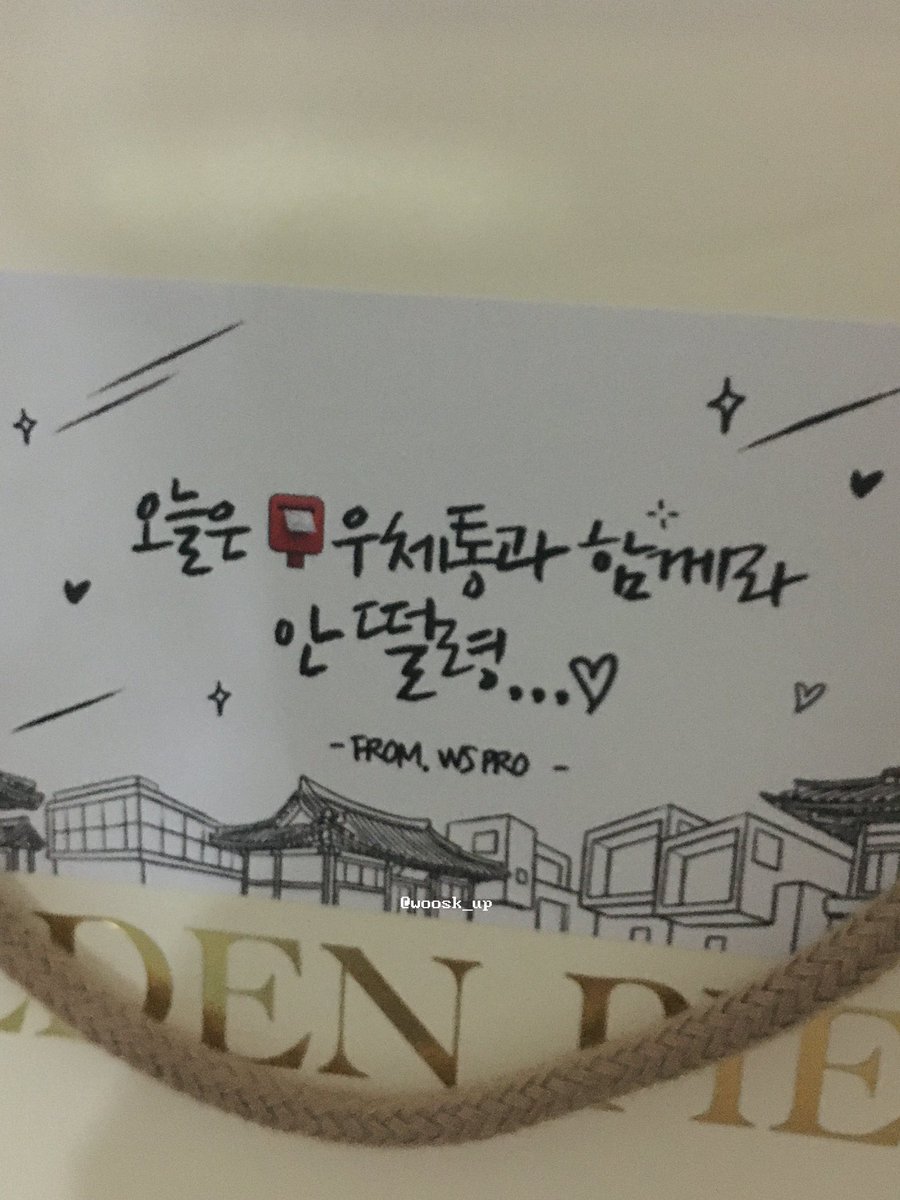 오늘은 우체통과 함께라
안 떨령...♡
- FROM. WS PRO -
@woosk_up
DEN PIE